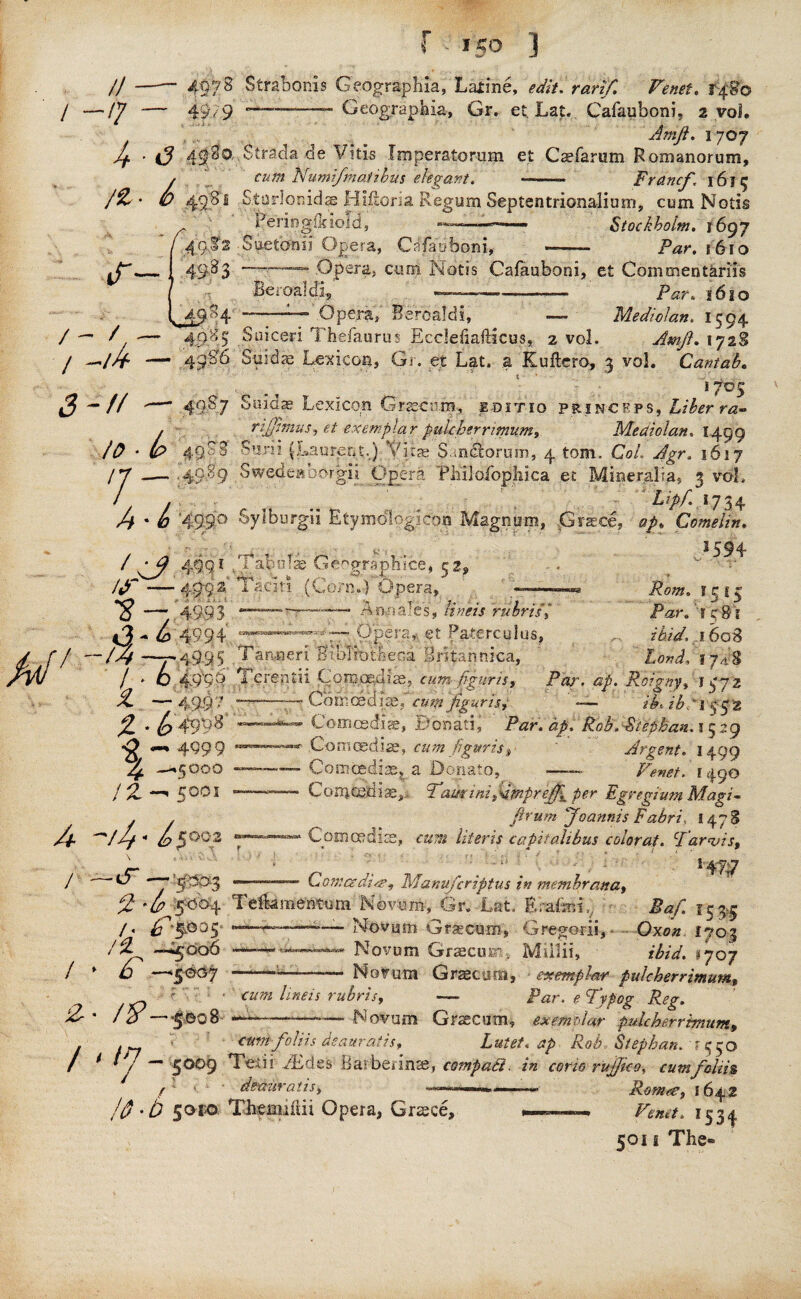 [ 150 ]
11 —— 4978 Strabonis Geographia, Latine, edit. rarif. Venet. 1480
1 — 17 — 4979 ——— Geographia, Gr. et Lat. Cafauboni, 2 vol.
Amft. 1707
4 · 3 4980 Strada de Vitis Imperatorum et Cæfarum Romanorum,
cum Numifmatibus elegant. —— Francf. 1615
12 · 6 4981 Sturlonidæ Hiftoria Regum Septentrionalium, cum Notis
Peringfkiold, ——— Stockholm. 1697
4982 Suetonii Opera, Cafauboni, —— Par. 1610
5 — 4983 ——— Opera, cum Notis Cafauboni, et Commentariis
Beroaldi, ——— Par. 1610
4984 ——— Opera, Beroaldi, — Mediolan. 1594
1 — 1 — 4985 Suiceri Thefaurus Ecclefiafticus, 2 vol. Amft. 1728
1 — 14 — 4986 Suidæ Lexicon, Gr. et Lat. a Kuftero, 3 vol. Cantab.
1705
3 - 11 — 4987 Suidæ Lexicon Græcum, EDITIO PRINCEPS, Liber ra-
riffimus, et exemplar pulcherrimum, Mediolan. 1499
10 · 6 4988 Surii (Laurent.) Vitæ Sanctorum, 4 tom. Col. Agr. 1617
17 — 4989 Swedenborgii Opera Philofophica et Mineralia, 3 vol.
Lipf. 1734
4 · 6 4990 Sylburgii Etymologicon Magnum, Græce, ap. Comelin.
1594
1 · 9 4991 Tabulæ Geographice, 52,
15 — 4992 Taciti (Corn.) Opera, ——— Rom. 1515
8 — 4993 ——— Annales, lineis rubris, Par. 1581
3 - 6 4994 ——— Opera, et Paterculus, ibid. 1608
— 14 — 4995 Tanneri Bibliotheca Britannica, Lond. 1748
1 · 6 4996 Terentii Comœdiæ, cum figuris, Par. ap. Roigny, 1572
2 — 4997 ——— Comœdiæ, cum figuris, — ib. ib. 1552
2 · 6 4998 ——— Comœdiæ, Donati, Par. ap. Rob. Stephan. 1529
9 — 4999 ——— Comœdiæ, cum figuris, Argent. 1499
4 — 5000 ——— Comœdiæ, a Donato, —— Venet. 1490
12 — 5001 ——— Comœdiæ, Taurini, impreff. per Egregium Magi-
ftrum Joannis Fabri, 1478
4 - 14 · 6 5002 ——— Comœdiæ, cum literis capitalibus colorat. Tarvis,
1477
1 — 5 — 5003 ——— Comœdiæ, Manufcriptus in membrana,
2 · 6 5004 Teftamentum Novum, Gr. Lat. Erafmi, Baf. 1535
1 · 6 5005 ——— Novum Græcum, Gregorii, Oxon. 1703
12 — 5006 ——— Novum Græcum, Millii, ibid. 1707
1 · 6 — 5007 ——— Novum Græcum, exemplar pulcherrimum,
cum lineis rubris, —— Par. e Typog Reg.
2 · 18 — 5008 ——— Novum Græcum, exemplar pulcherrimum,
cum foliis deauratis, Lutet. ap Rob. Stephan. 1550
1 · 17 — 5009 Tetii Ædes Barberinæ, compact. in corio ruffico, cum foliis
deauratis, ——— Romæ, 1642
10 · 6 5010 Themiftii Opera, Græce, ——— Venet. 1534
5011 The-